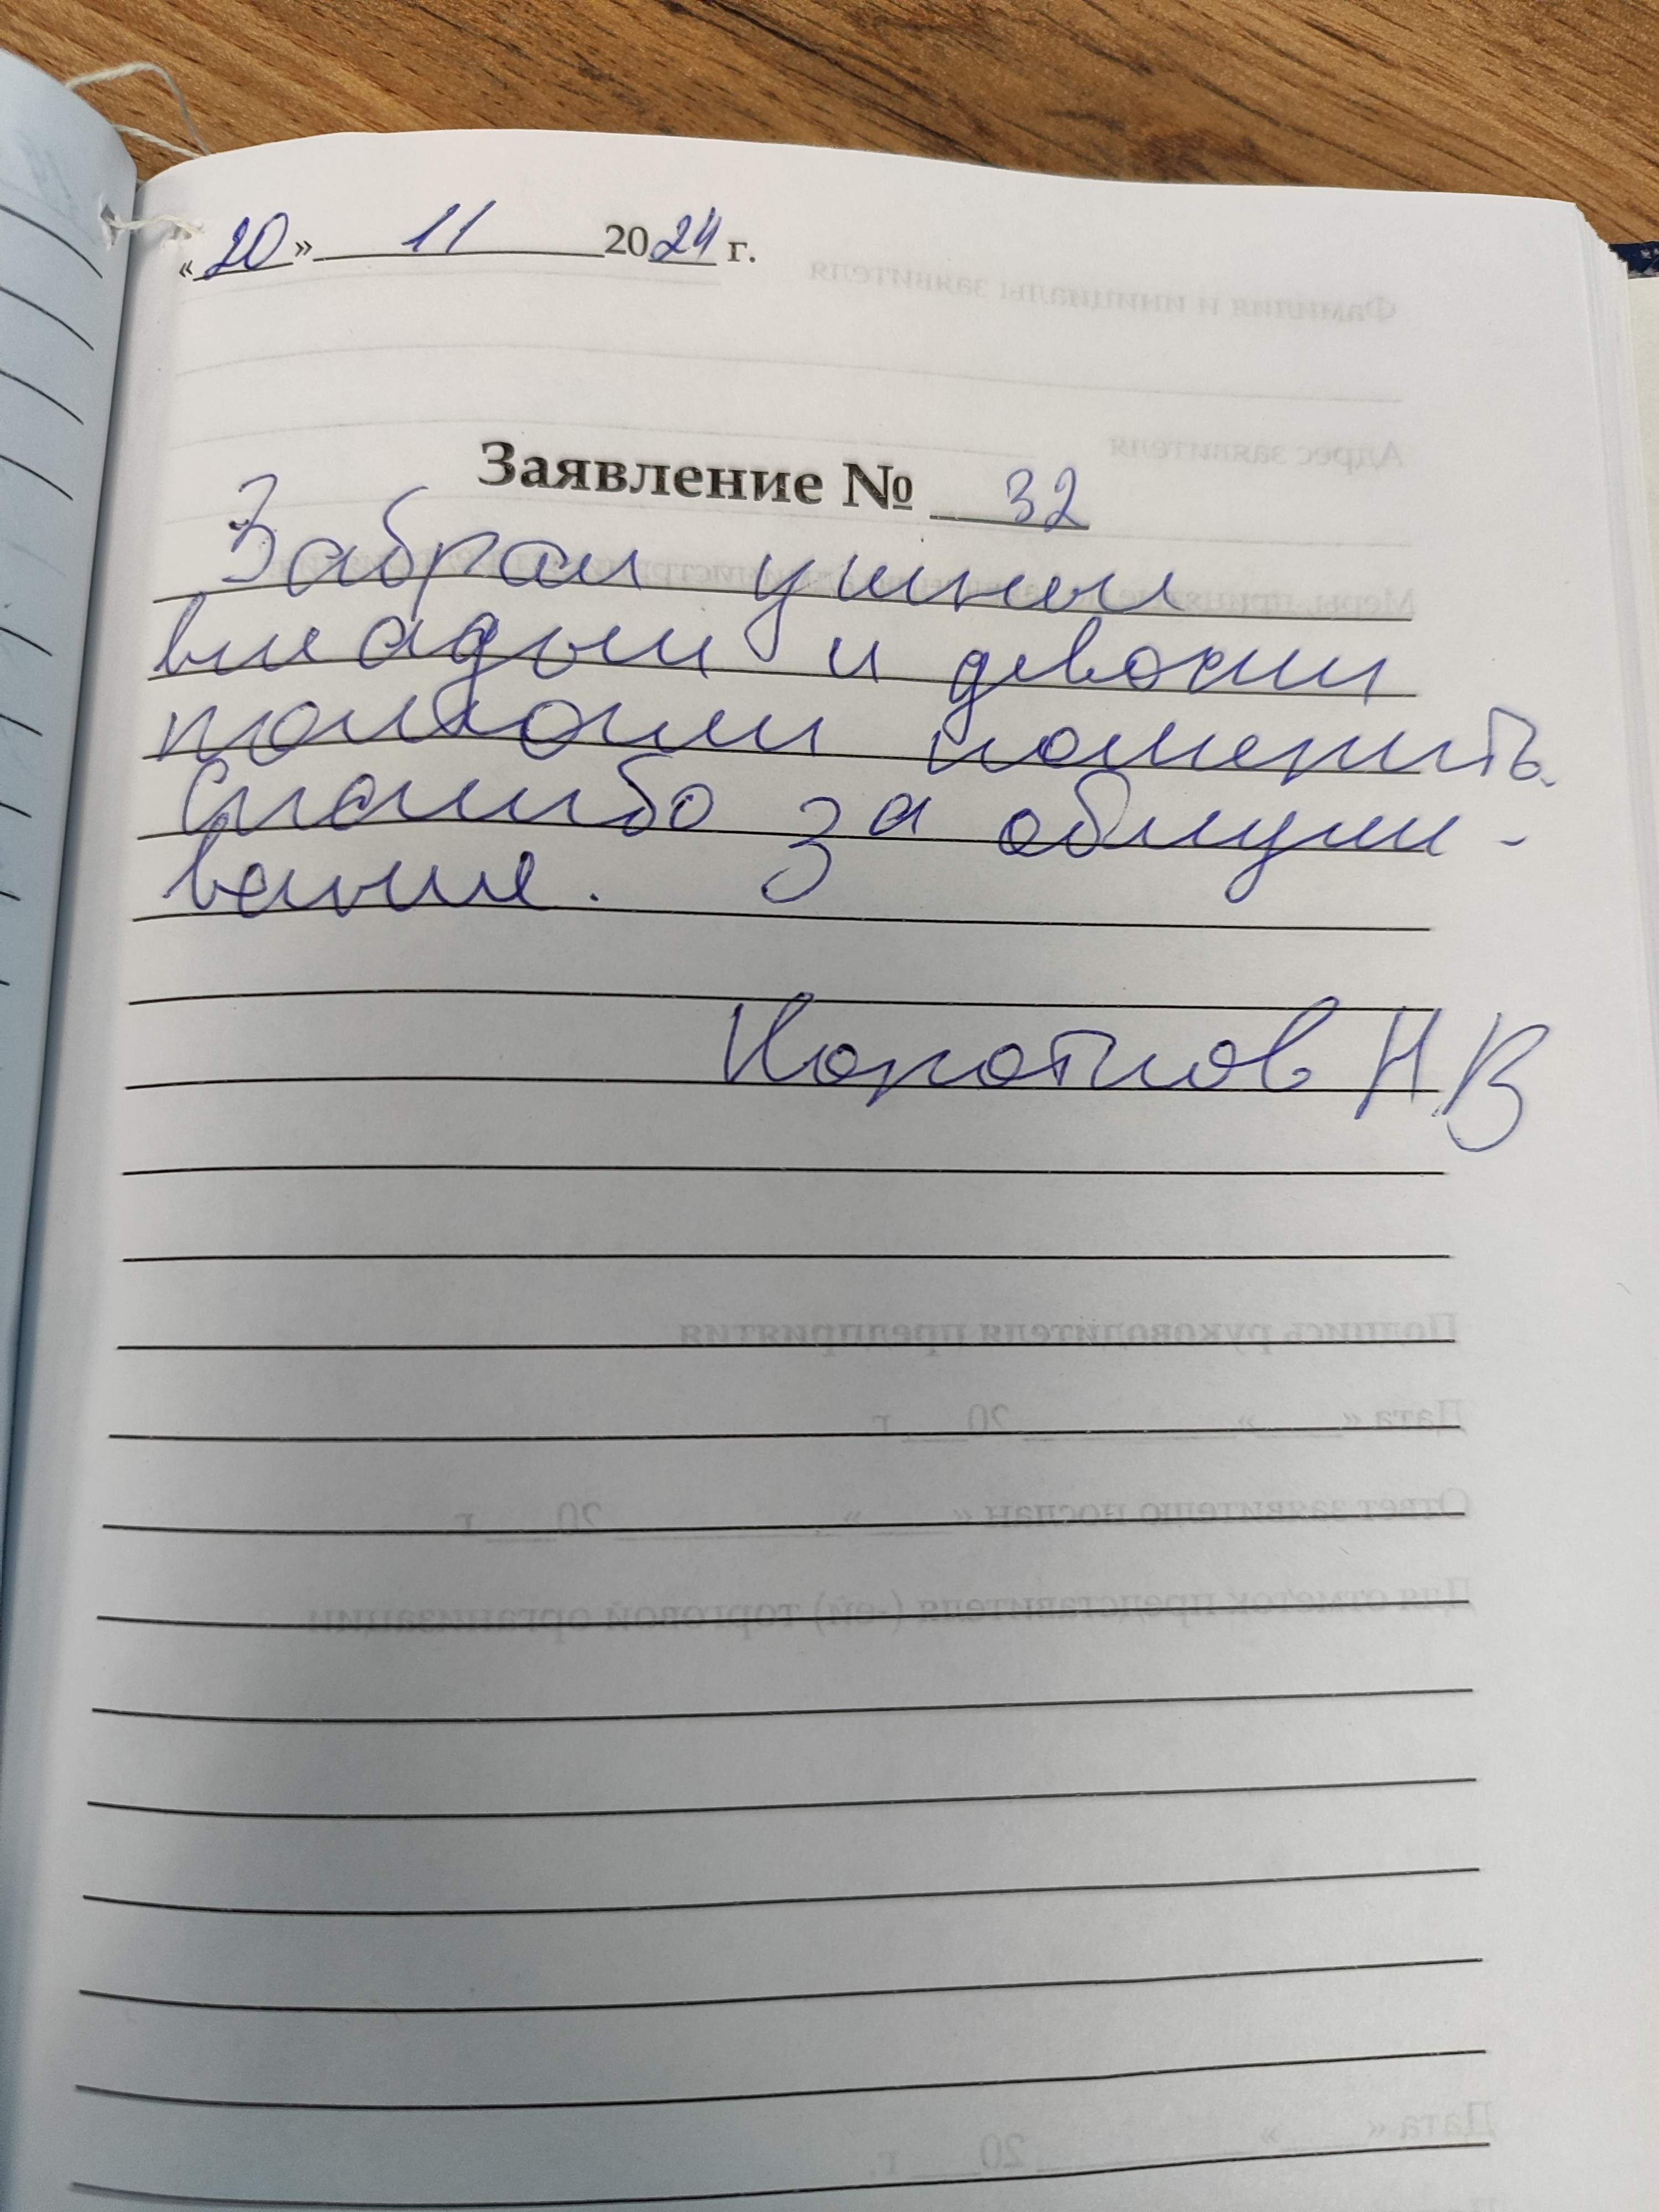 «20» 11 2024 г.
Заявление № 32
Забрал ушные
вкладыши и девочки
помогли померить.
Спасибо за обслужи-
вание.
Коротков Н.В